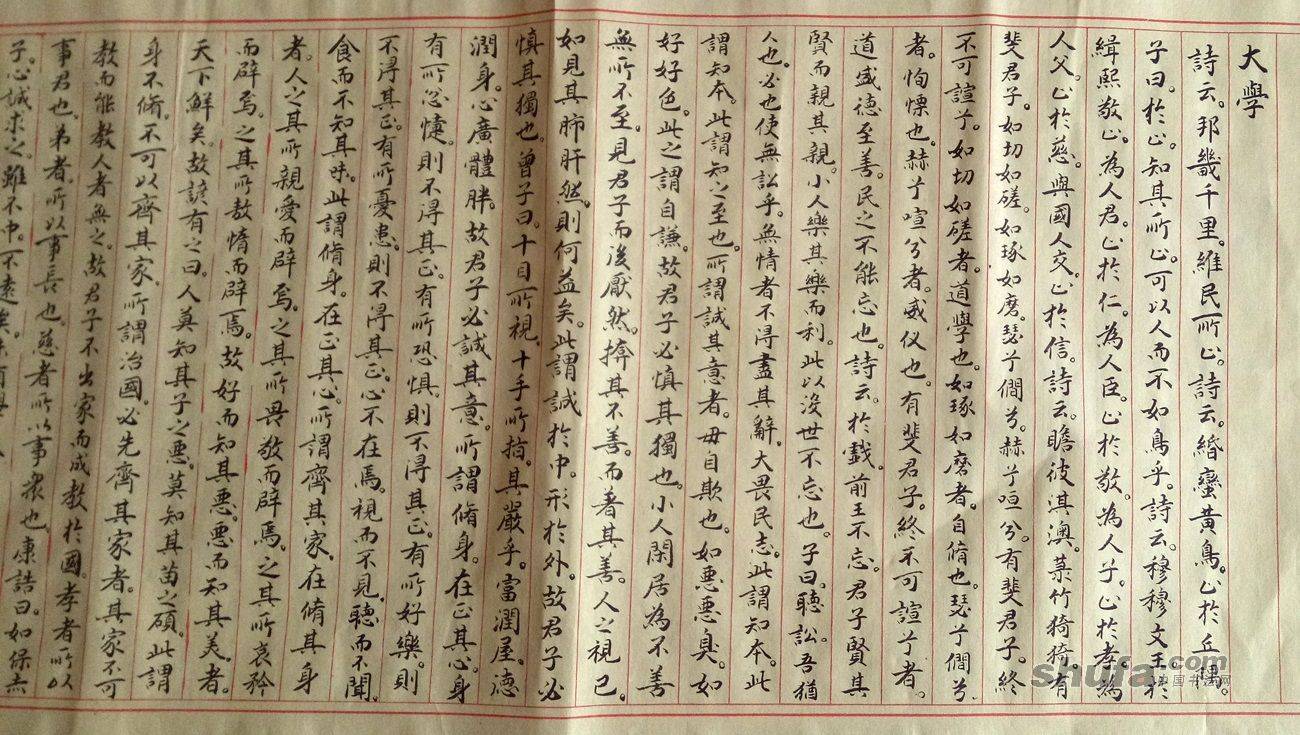 大學
詩云。邦畿千里。維民所止。詩云。緡蠻黃鳥。止於丘隅。
子曰。於止。知其所止。可以人而不如鳥乎。詩云。穆穆文王。於
緝熙敬止。為人君。止於仁。為人臣。止於敬。為人子。止於孝。為
人父。止於慈。與國人交。止於信。詩云。瞻彼淇澳。菉竹猗猗。有
斐君子。如切如磋。如琢如磨。瑟兮僩兮。赫兮咺兮。有斐君子。終
不可諠兮。如切如磋者。道學也。如琢如磨者。自脩也。瑟兮僩兮
者。恂慄也。赫兮喧兮者。威仪也。有斐君子。終不可諠兮者。
道盛德至善。民之不能忘也。詩云。於戲前王不忘。君子賢其
賢而親其親。小人樂其樂而利。此以沒世不忘也。子曰。聽訟吾猶
人也。必也使無訟乎。無情者不得盡其辭。大畏民志。此謂知本。此
謂知本。此謂知之至也。所謂誠其意者。毋自欺也。如惡惡臭。如
好好色。此之謂自謙。故君子必慎其獨也。小人閑居為不善
無所不至。見君子而後厭然。揜其不善。而著其善。人之視己。
如見其肺肝然。則何益矣。此謂誠於中。形於外。故君子必
慎其獨也。曾子曰。十目所視。十手所指。其嚴乎。富潤屋。德
潤身。心廣體胖。故君子必誠其意。所謂脩身。在正其心。身
有所忿懥。則不得其正。有所恐惧。則不得其正。有所好樂。則
不得其正。有所憂患。則不得其正。心不在焉。視而不見。聽而不聞
食而不知其味。此謂脩身。在正其心。所謂齊其家。在脩其身
者。人之其所親愛而辟焉。之其所畏敬而辟焉。之其所哀矜
而辟焉。之其所敖惰而辟焉。故好而知其惡。惡而知其美。者。
天下鮮矣。故諺有之曰。人莫知其子之惡。莫知其苗之碩。此謂
身不脩。不可以齊其家。所謂治國。必先齊其家者。其家不可
教而能教人者無之。故君子不出家而成教於國。孝者所以
事君也。弟者。所以事長也。慈者所以事衆也。康誥曰。如保赤
子。心誠求之。雖不中。不遠矣。未有學
shufa.com
中国书法网